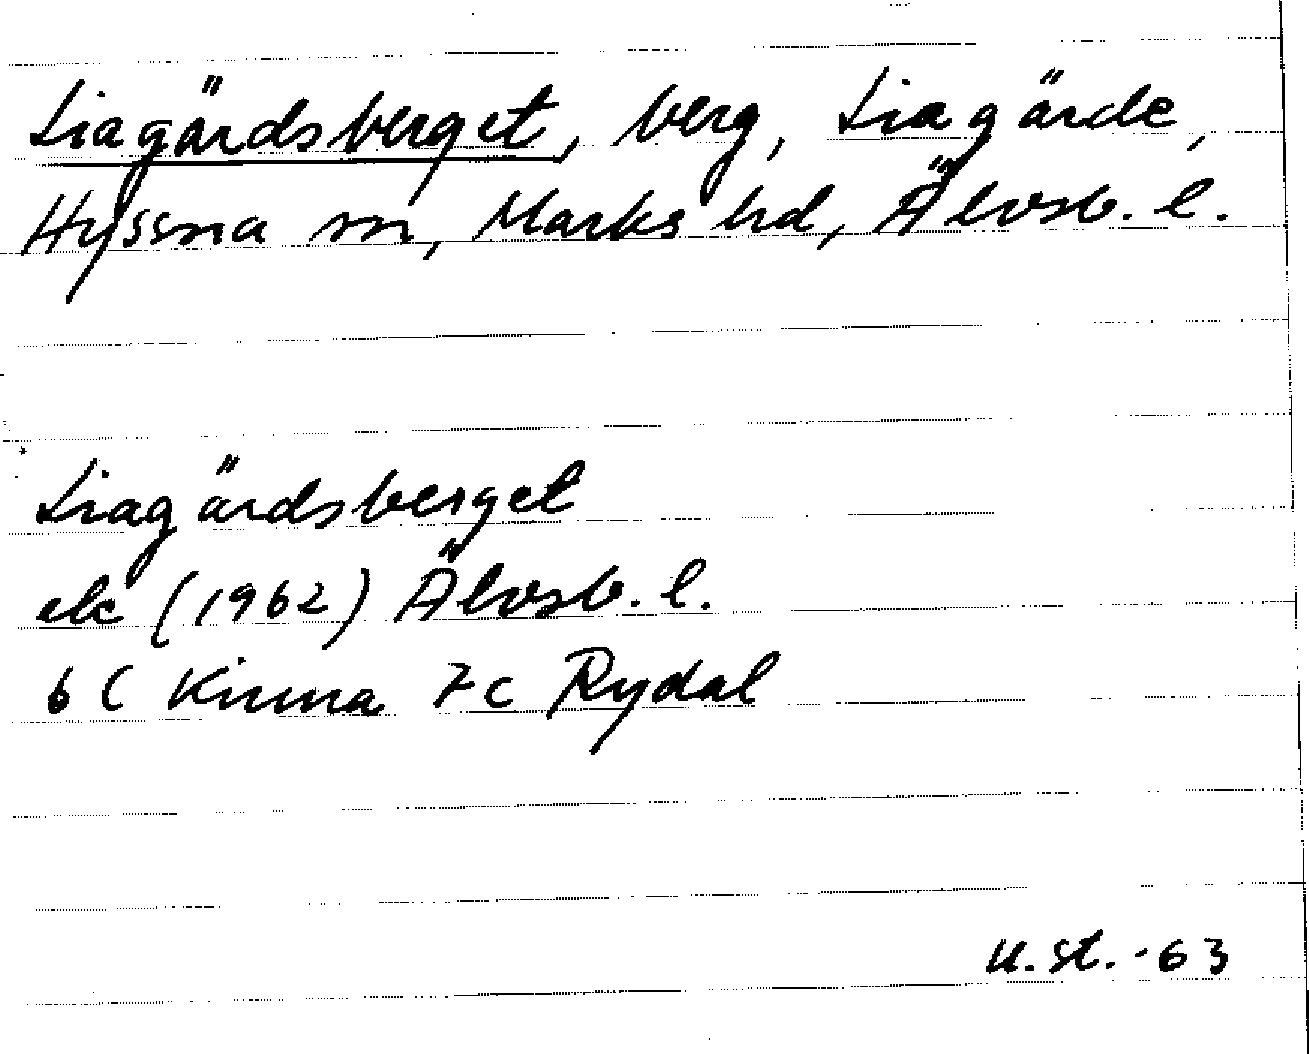 Liagärdsberget, berg, Liagärde,
Hyssna sn, Marks hd, Älvsb. l.
Liagärdsberget
ek (1962) Älvsb. l.
6C Kinna 7c Rydal
U. St. -63